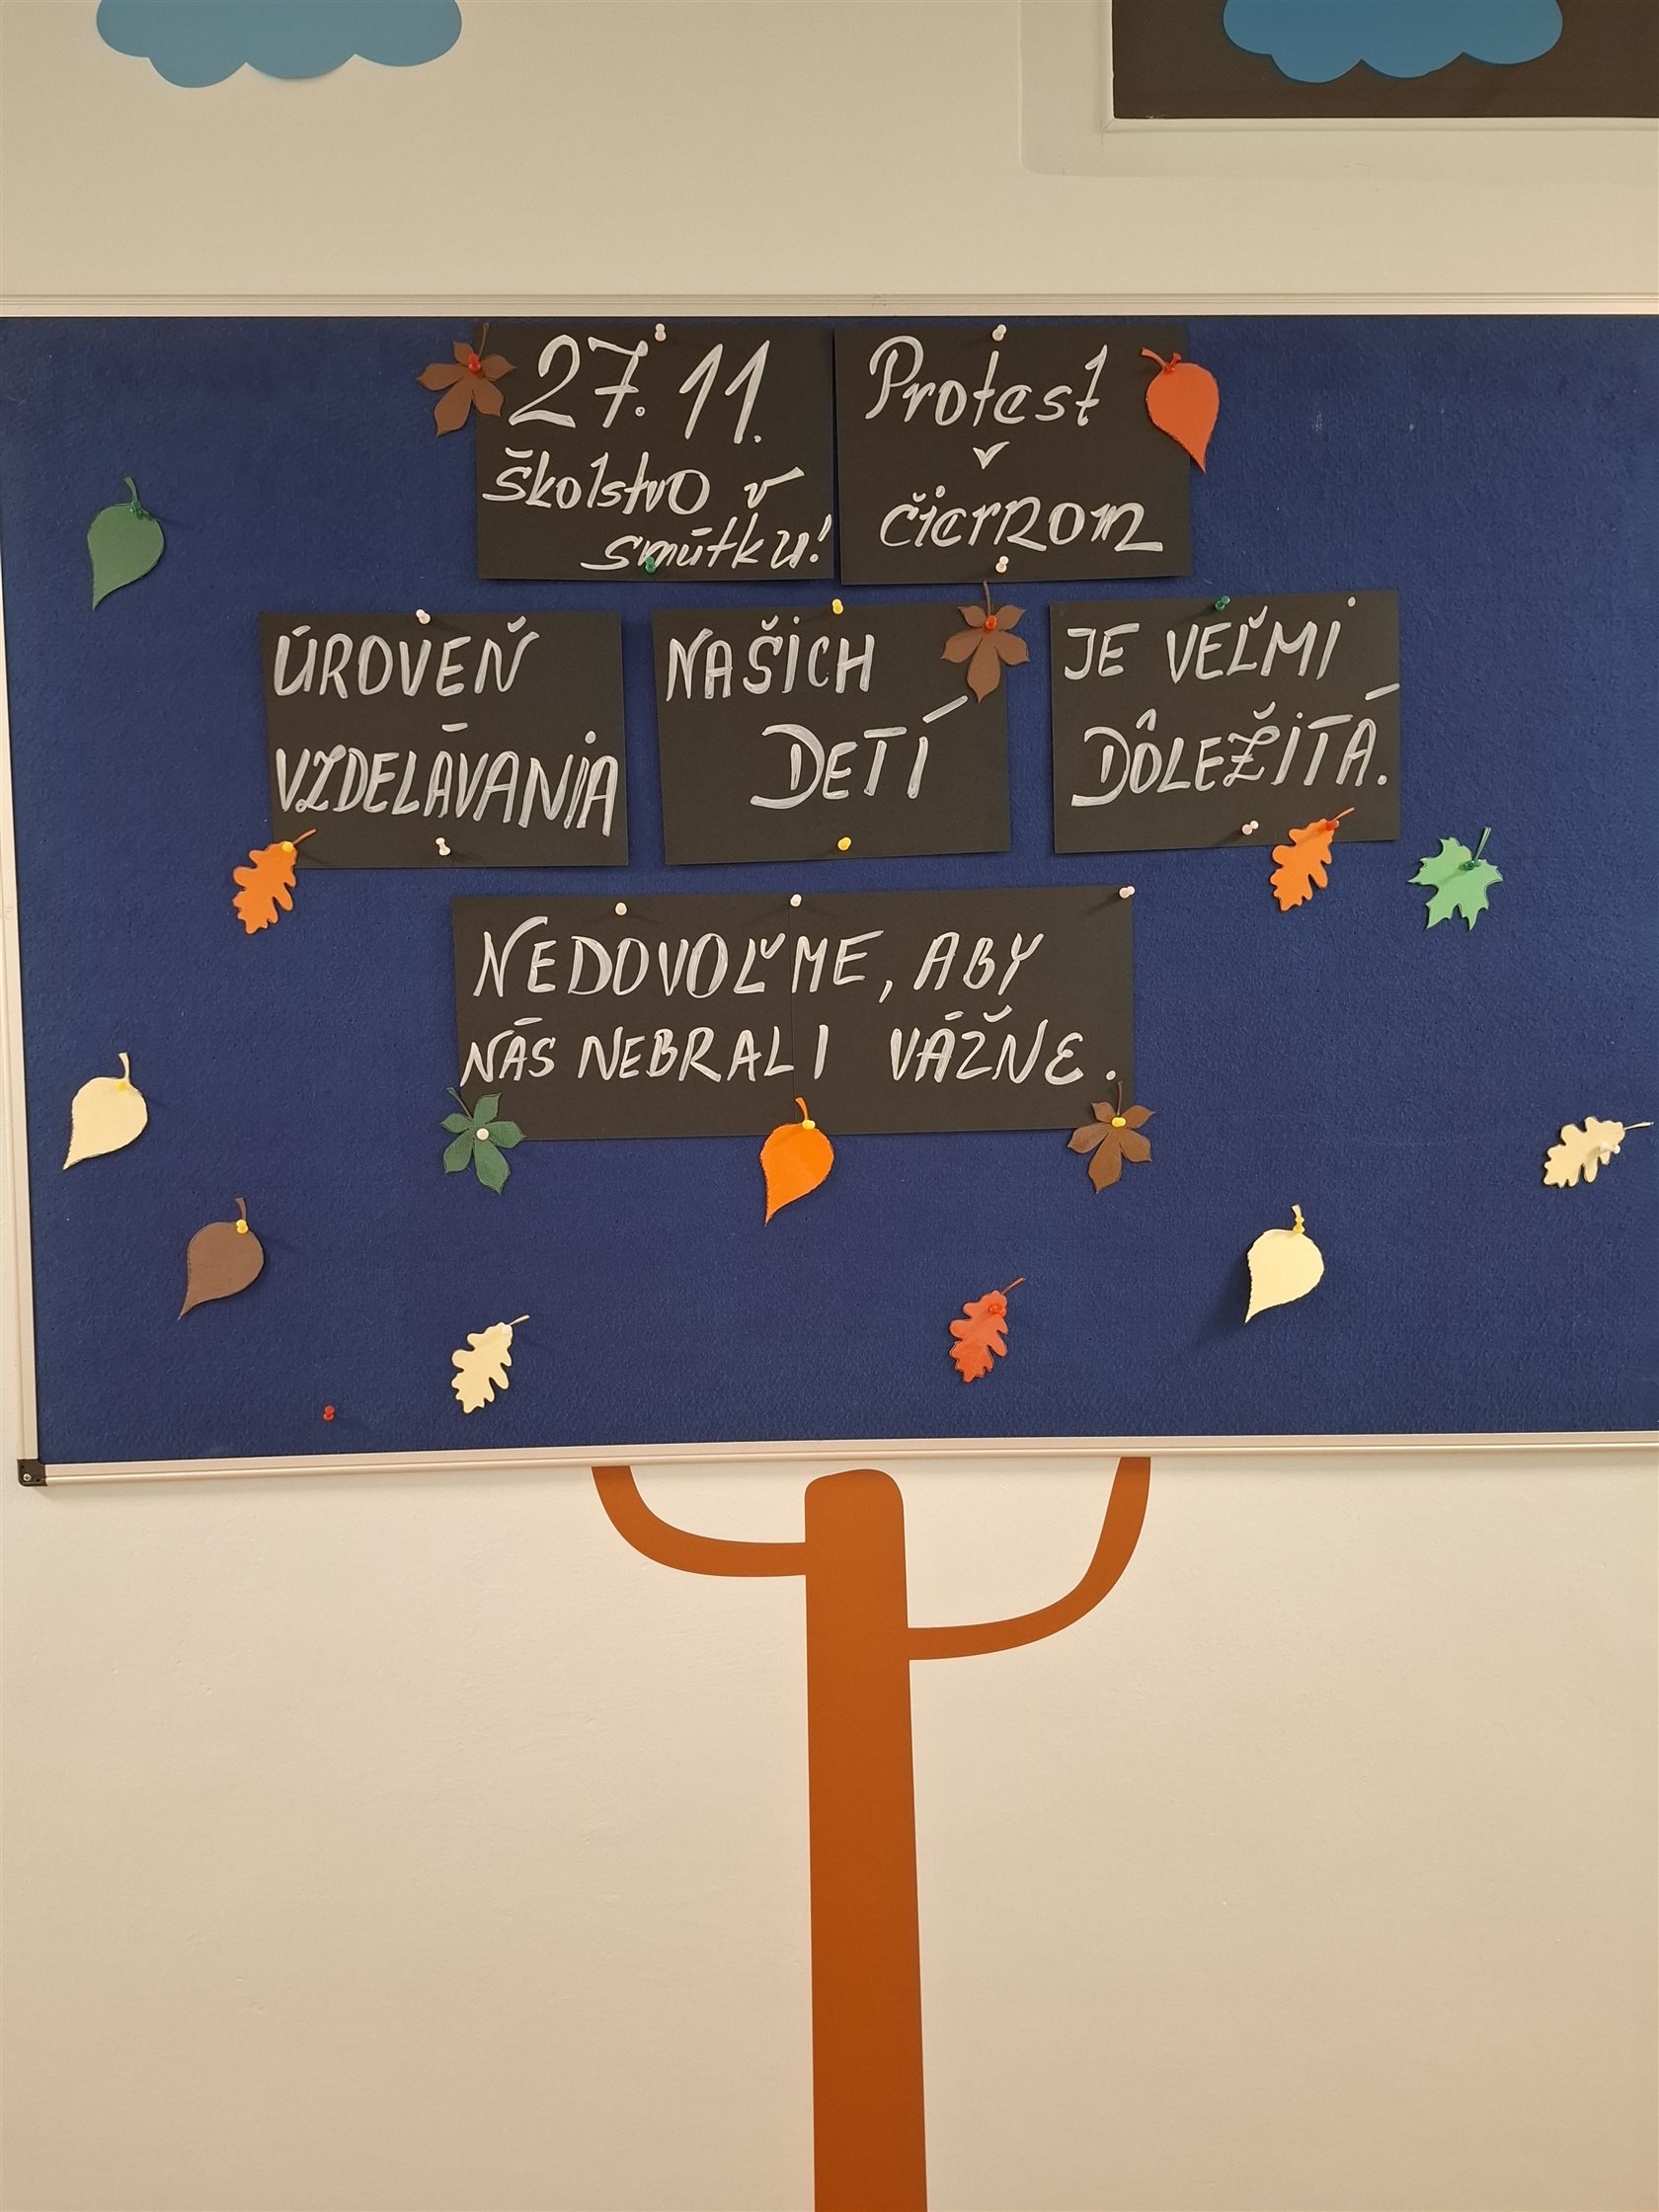 27. 11.
školstvo v
smútku!
Protest
v
čiernom
ÚROVEŇ
VZDELÁVANIA
NAŠICH
DETÍ
JE VEĽMI
DÔLEŽITÁ.
NEDOVOĽME, ABY
NÁS NEBRALI VÁŽNE.